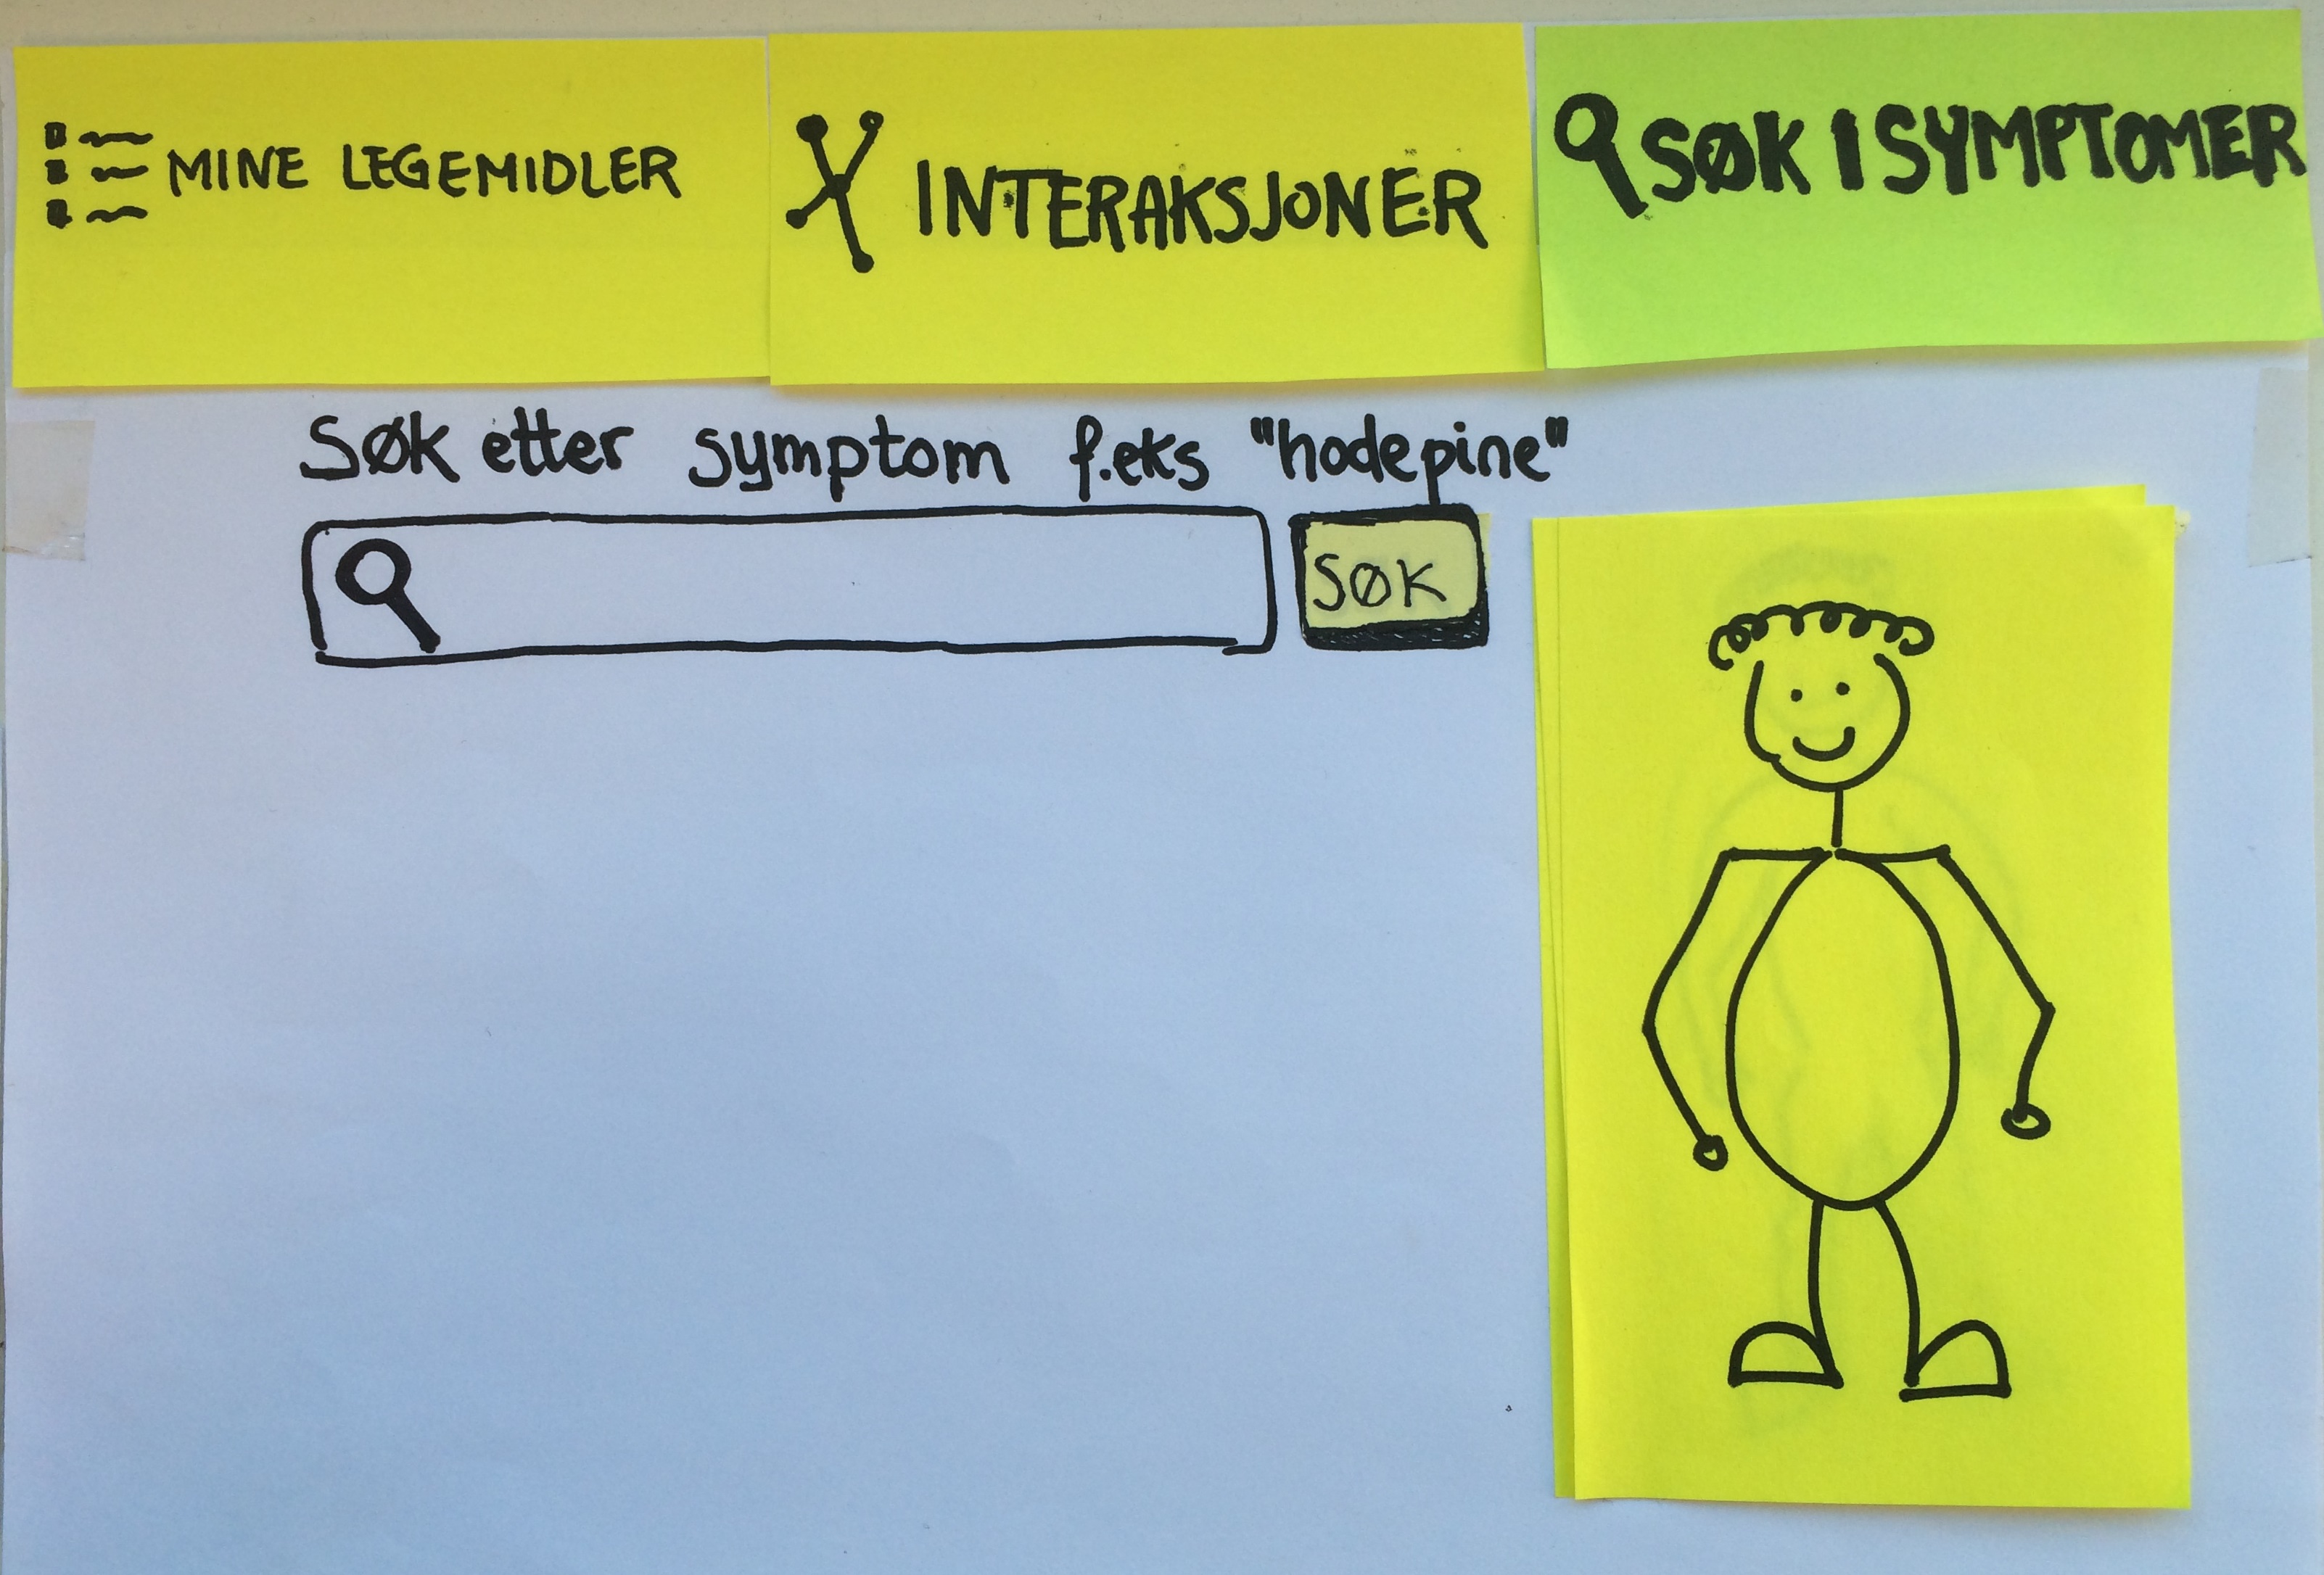 MINE LEGEMIDLER
INTERAKSJONER
SØK I SYMPTOMER
Søk etter symptom f.eks "hodepine"
SØK